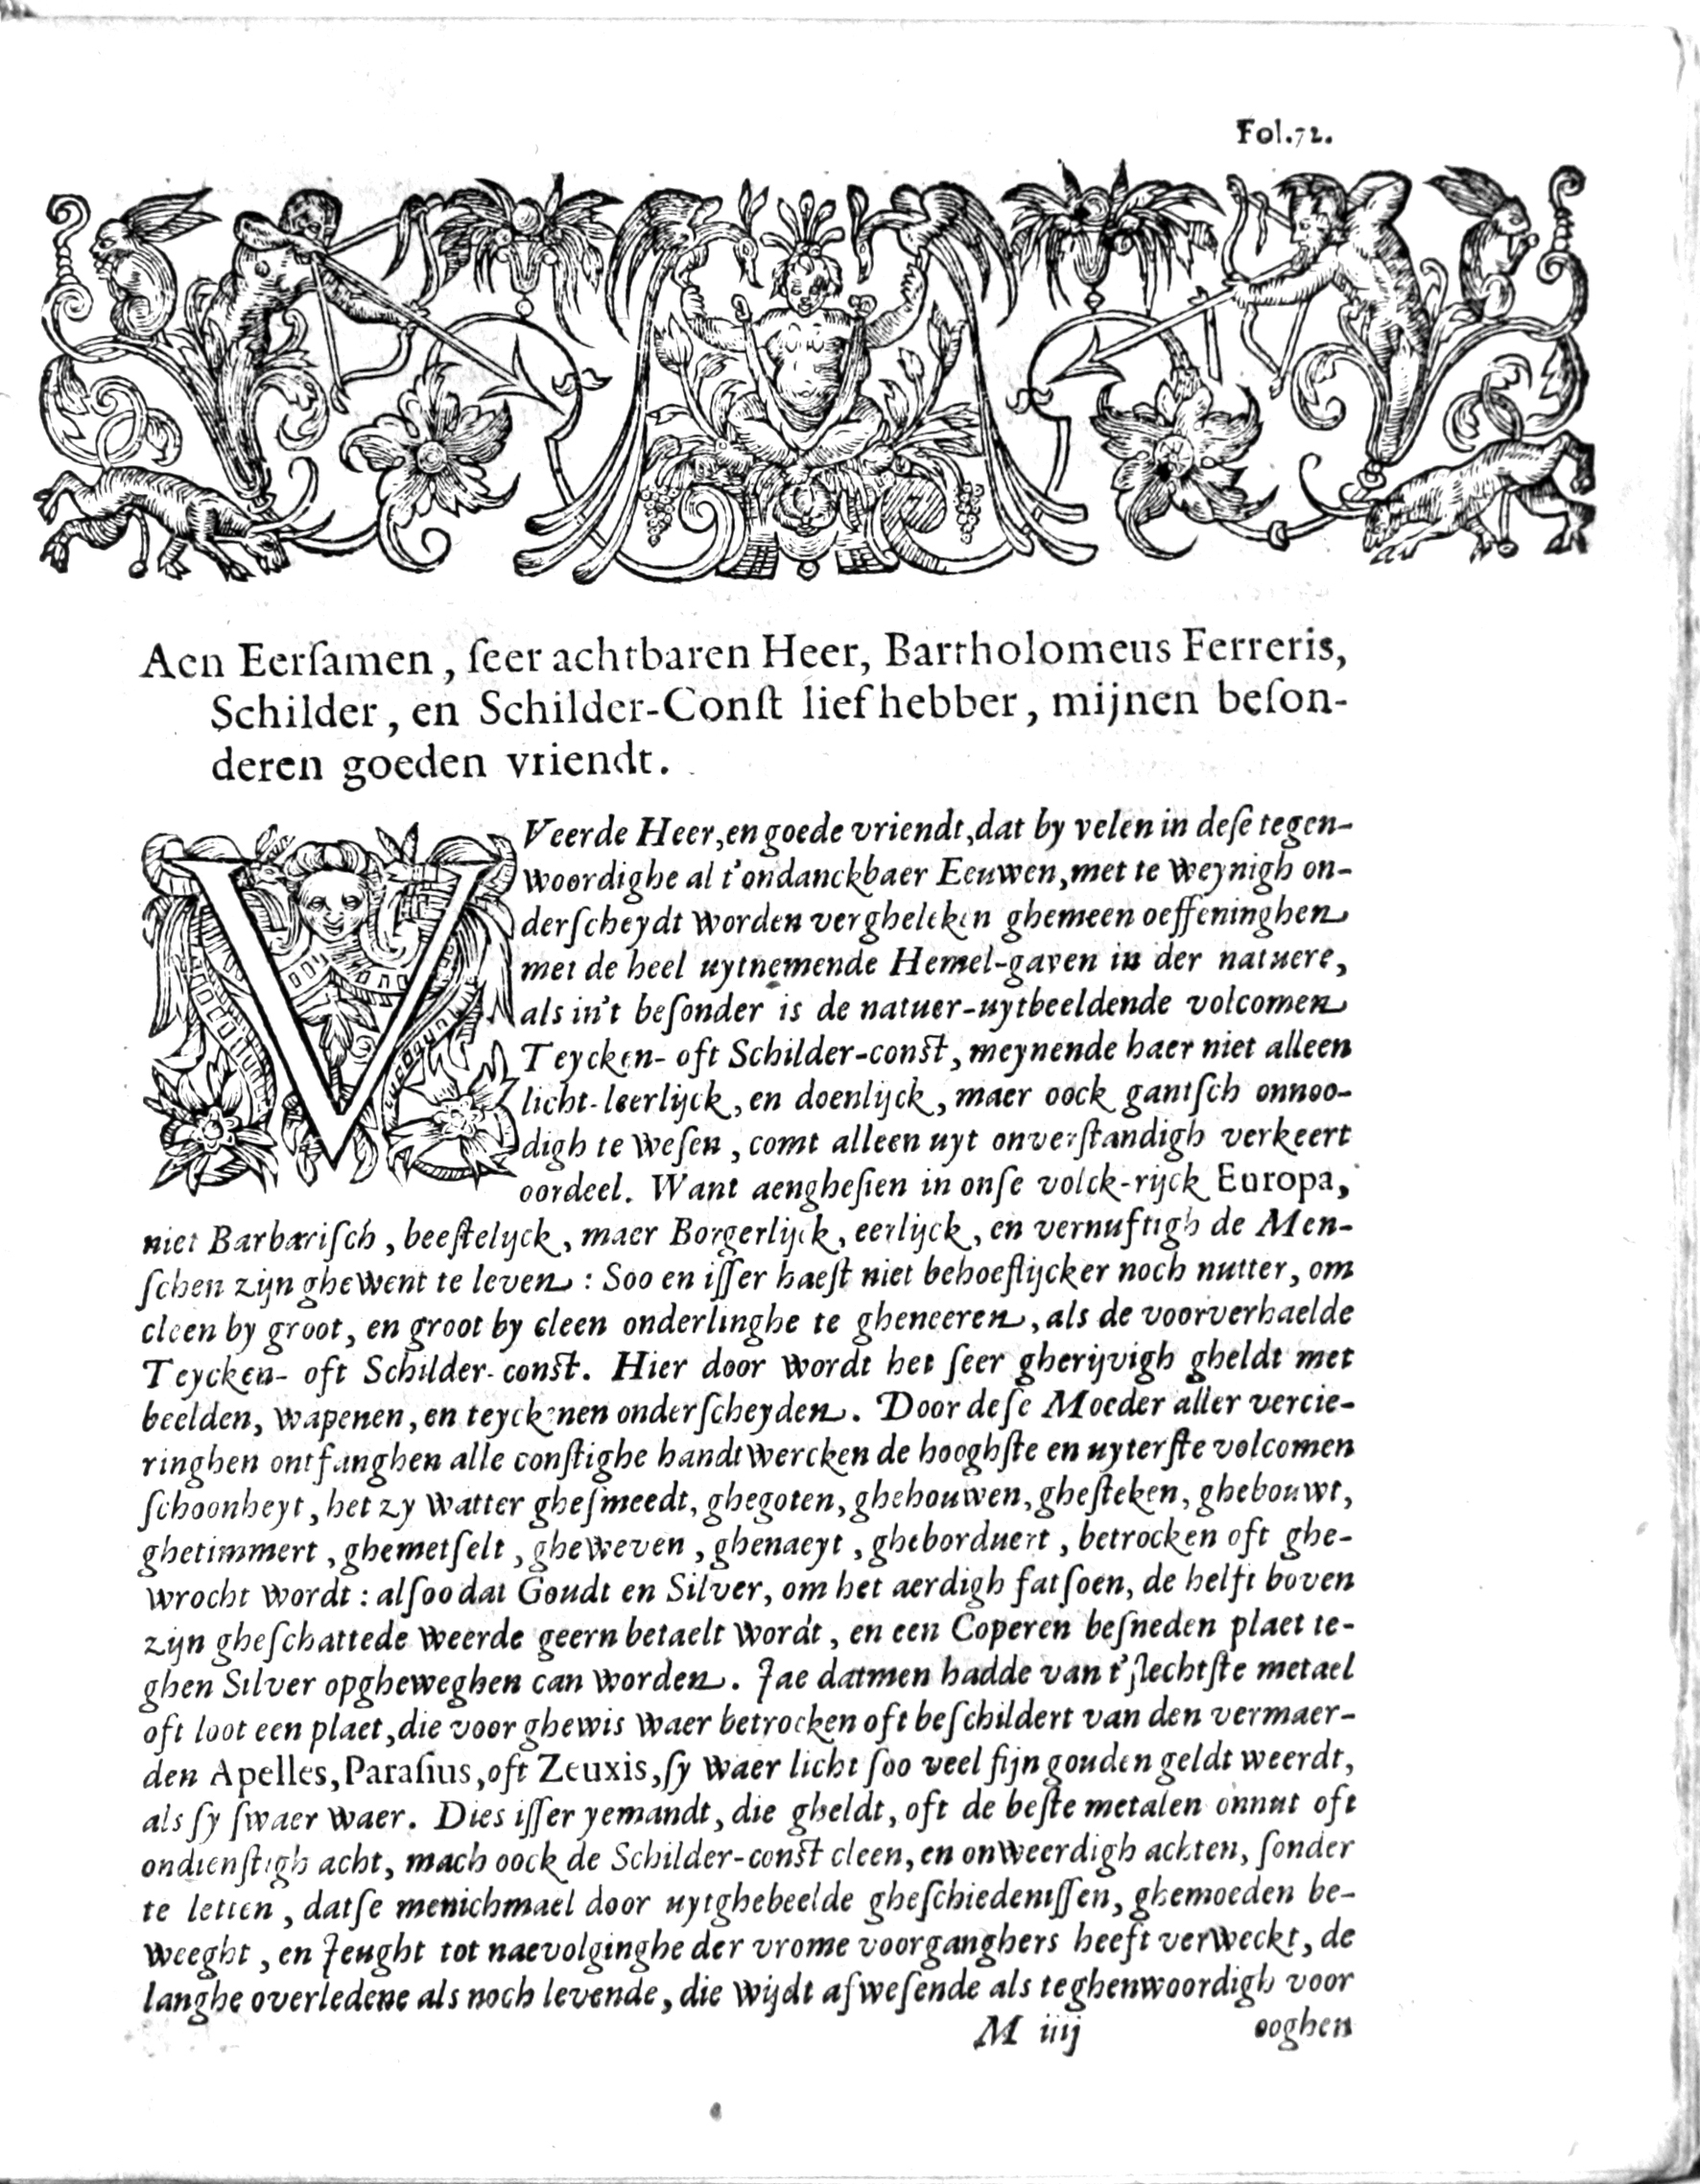 Fol.72.
Aen Eerſamen, ſeer achtbaren Heer, Bartholomeus Ferreris,
Schilder, en Schilder-Conſt liefhebber, mijnen beſon-
deren goeden vriendt.
VVeerde Heer, en goede vriendt, dat by velen in deſe tegen-
woordighe al t'ondanckbaer Eeuwen, met te weynigh on-
derſcheydt worden vergheleken ghemeen oeffeninghen
met de heel uytnemende Hemel-gaven in der natuere,
als in't beſonder is de natuer-uytbeeldende volcomen
Teycken- oft Schilder-conſt, meynende haer niet alleen
licht-leerlijck, en doenlijck, maer oock gantſch onnoo-
digh te weſen, comt alleen uyt onverſtandigh verkeert
oordeel. Want aengheſien in onſe volck-rijck Europa,
niet Barbariſch, beeſtelyck, maer Borgerlijck, eerlijck, en vernuftigh de Men-
ſchen zijn ghewent te leven: Soo en iſſer haeſt niet behoeflijcker noch nutter, om
cleen by groot, en groot by cleen onderlinghe te gheneeren, als de voorverhaelde
Teycken- oft Schilder-conſt. Hier door wordt het ſeer gherijvigh gheldt met
beelden, wapenen, en teyckenen onderſcheyden. Door deſe Moeder aller vercie-
ringhen ontfanghen alle conſtighe handtwercken de hooghſte en uyterſte volcomen
ſchoonheyt, het zy watter gheſmeedt, ghegoten, ghehouwen, gheſteken, ghebouwt,
ghetimmert, ghemetſelt, gheweven, ghenaeyt, gheborduert, betrocken oft ghe-
wrocht wordt: alſoo dat Goudt en Silver, om het aerdigh fatſoen, de helft boven
zijn gheſchattede weerde geern betaelt wordt, en een Coperen beſneden plaet te-
ghen Silver opgheweghen can worden. Jae datmen hadde van t'ſlechtſte metael
oft loot een plaet, die voor ghewis waer betrocken oft beſchildert van den vermaer-
den Apelles, Paraſius, oft Zeuxis, ſy waer licht ſoo veel fijn gouden geldt weerdt,
als ſy ſwaer waer. Dies iſſer yemandt, die gheldt, oft de beſte metalen onnut oft
ondienſtigh acht, mach oock de Schilder-conſt cleen, en onweerdigh achten, ſonder
te letten, datſe menichmael door uytghebeelde gheſchiedeniſſen, ghemoeden be-
weeght, en Jeught tot naevolginghe der vrome voorganghers heeft verweckt, de
langhe overledene als noch levende, die wijdt afweſende als teghenwoordigh voor
M iiij ooghen